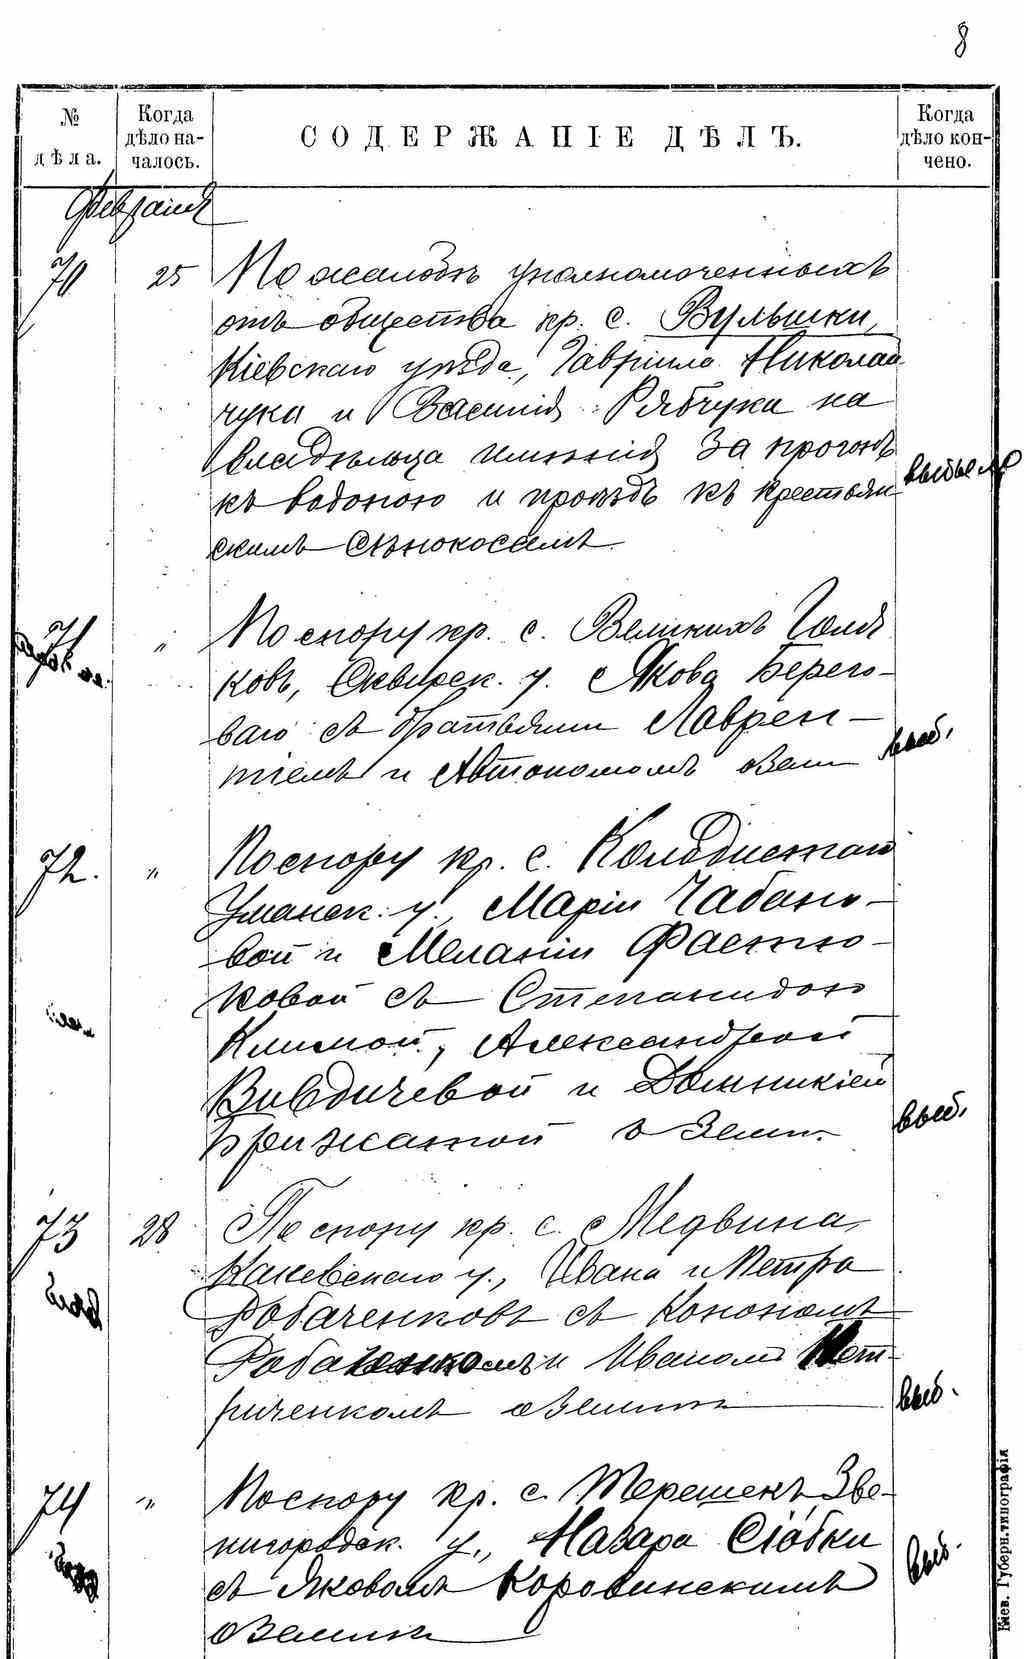 8
№ дѣла.
Когда дѣло началось.
СОДЕРЖАНІЕ ДѢЛЪ.
Когда дѣло кончено.
Февраля
70 25 По жалобѣ уполномоченныхъ
отъ общества кр. с. Вульшки,
Кіевскаго уѣзда, Гавріила Николай
чука и Василія Рябчука на
владѣльца имѣнія за прогонъ
къ водопою и проѣздъ къ крестьян
скимъ сѣнокосамъ.
71 " По спору кр. с. Великихъ
ковъ, Сквирск. у. Якова Берего-
ваго съ братьями Лаврен-
тіемъ и Автономомъ о земл
выб.
72. " По спору кр. с.
Уманск. у., Маріи Чабано-
вой и Меланіи Фастю-
ковой съ Степанидою
Климой, Александрой
Вивдичевой и Домникіей
Брижатой о земл.
выб.
73 28 По спору кр. с. Медвина,
Каневскаго у., Ивана и Петра
Робаченковъ съ Конономъ
Робаченкомъ и Иваномъ Пет-
риченкомъ о землѣ
выб.
74 " По спору кр. с. Терешекъ Зве-
нигородск. у., Назара Сіобки
съ Яковомъ Коровинскимъ
о землѣ
выб.
Кіев. Губерн. типографія